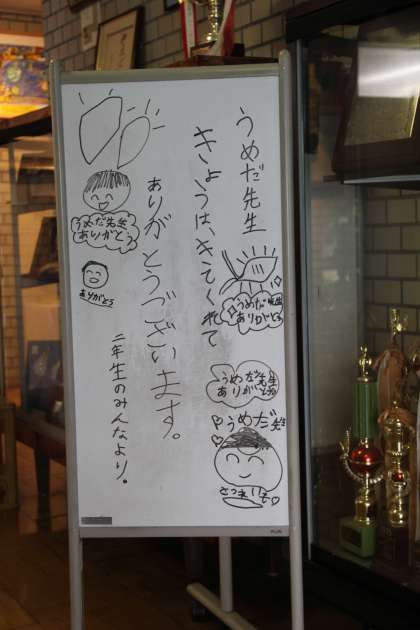 うめだ先生
きょうは、きてくれて
ありがとうございます。
二年生のみんなより。
うめだ先生
ありがとう
うめだ先生
ありがとう
うめだ先生
うめだ先生
ありがとう
ありがとう